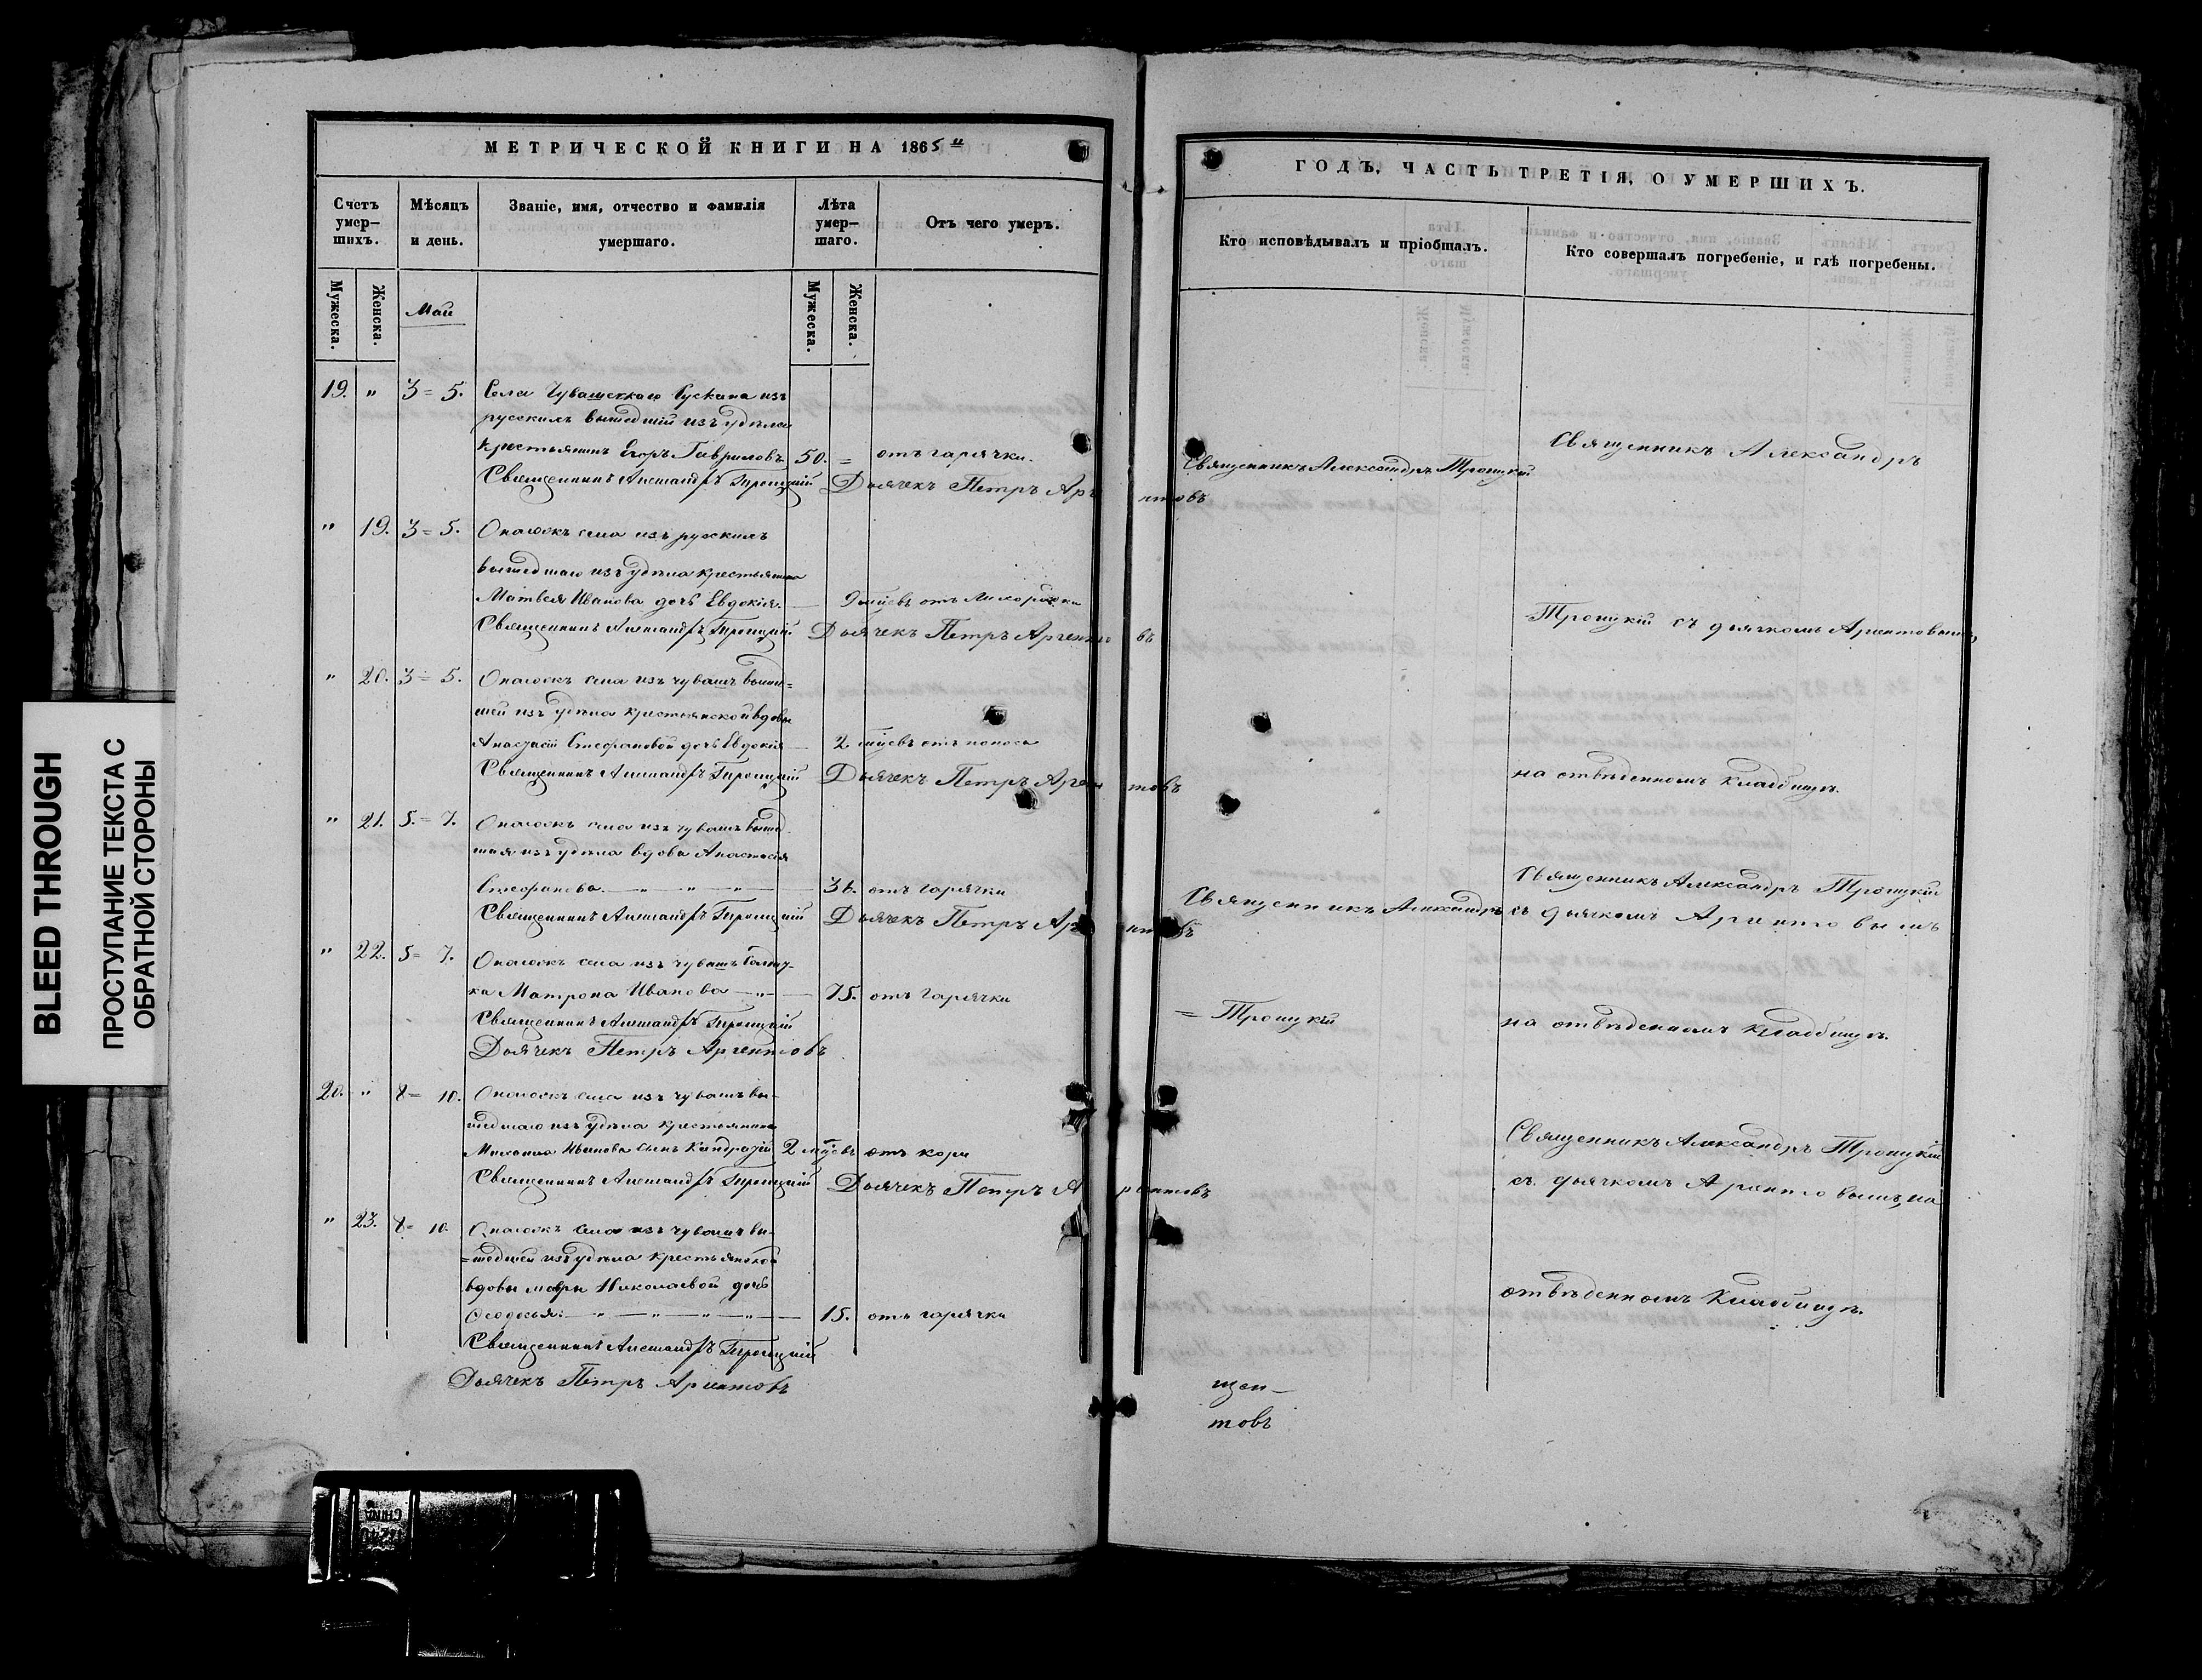 BLEED THROUGH
ПРОСТУПАНИЕ ТЕКСТА С
ОБРАТНОЙ СТОРОНЫ
МЕТРИЧЕСКОЙ КНИГИ НА 1865 й
Счетъ умер-шихъ.
Мѣсяцъ и день.
Званіе, имя, отчество и фамилія умершаго.
Лѣта умер-шаго.
Отъ чего умеръ.
Мужеска.
Женска.
Май
Мужеска.
Женска.
19. " 3 = 5. Села Чувашскаго Сускана изъ
русскихъ вышедшій изъ удѣла
крестьянинъ Егоръ Гавриловъ 50. = отъ горячки.
Священникъ Александръ Троицкій Дьячекъ Петръ Аргентовъ
" 19. 3 = 5. Онагожъ села изъ русскихъ
вышедшаго изъ удѣла крестьянина
Матвея Иванова дочь Евдокія. 9 мцевъ отъ лихорадки
Священникъ Александръ Троицкій Дьячекъ Петръ Аргентовъ
" 20. 3 = 5. Онагожъ села изъ чувашъ вышед=
шей изъ удѣла крестьянской вдовы
Анастасіи Стефановой дочь Евдокія 2 мцевъ отъ поноса
Священникъ Александръ Троицкій Дьячекъ Петръ Аргентовъ
" 21. 5. = 7. Онагожъ села изъ чувашъ вышед-
шая изъ удѣла вдова Анастасія
Стефанова. — " — " — " — 36. отъ горячки
Священникъ Александръ Троицкій Дьячекъ Петръ Аргентовъ
" 22. 5 = 7. Онагожъ села изъ чувашъ
ка Матрона Иванова — " — 75. отъ горячки
Священникъ Александръ Троицкій
Дьячекъ Петръ Аргентовъ
20. " 8 = 10. Онагожъ села изъ чувашъ вы-
шедшаго изъ удѣла крестьянина
Михаила Иванова сынъ Кандратій 2 мцевъ отъ кори
Священникъ Александръ Троицкій Дьячекъ Петръ Аргентовъ
" 23. 8 = 10. Онагожъ села изъ чувашъ вы-
=шедшей изъ удѣла крестьянской
вдовы Мавры Николаевой дочь
Ѳеодосья: — " — " — " — " — 15. отъ горячки
Священникъ Александръ Троицкій
Дьячекъ Петръ Аргентовъ
ГОДЪ, ЧАСТЬ ТРЕТІЯ, О УМЕРШИХЪ.
Кто исповѣдывалъ и пріобщалъ.
Кто совершалъ погребеніе, и гдѣ погребены.
Священникъ Александръ Троицкій
Священникъ Александръ
Троицкій съ дьячкомъ Аргентовымъ
на отвѣденномъ кладбищѣ.
Священникъ Александръ
= Троицкій
Священникъ Александръ Троицкій
съ дьячкомъ Аргентовымъ
на отвѣденномъ кладбищѣ.
Священникъ Александръ Троицкій
съ дьячкомъ Аргентовымъ, на
отвѣденномъ кладбищѣ.
товъ